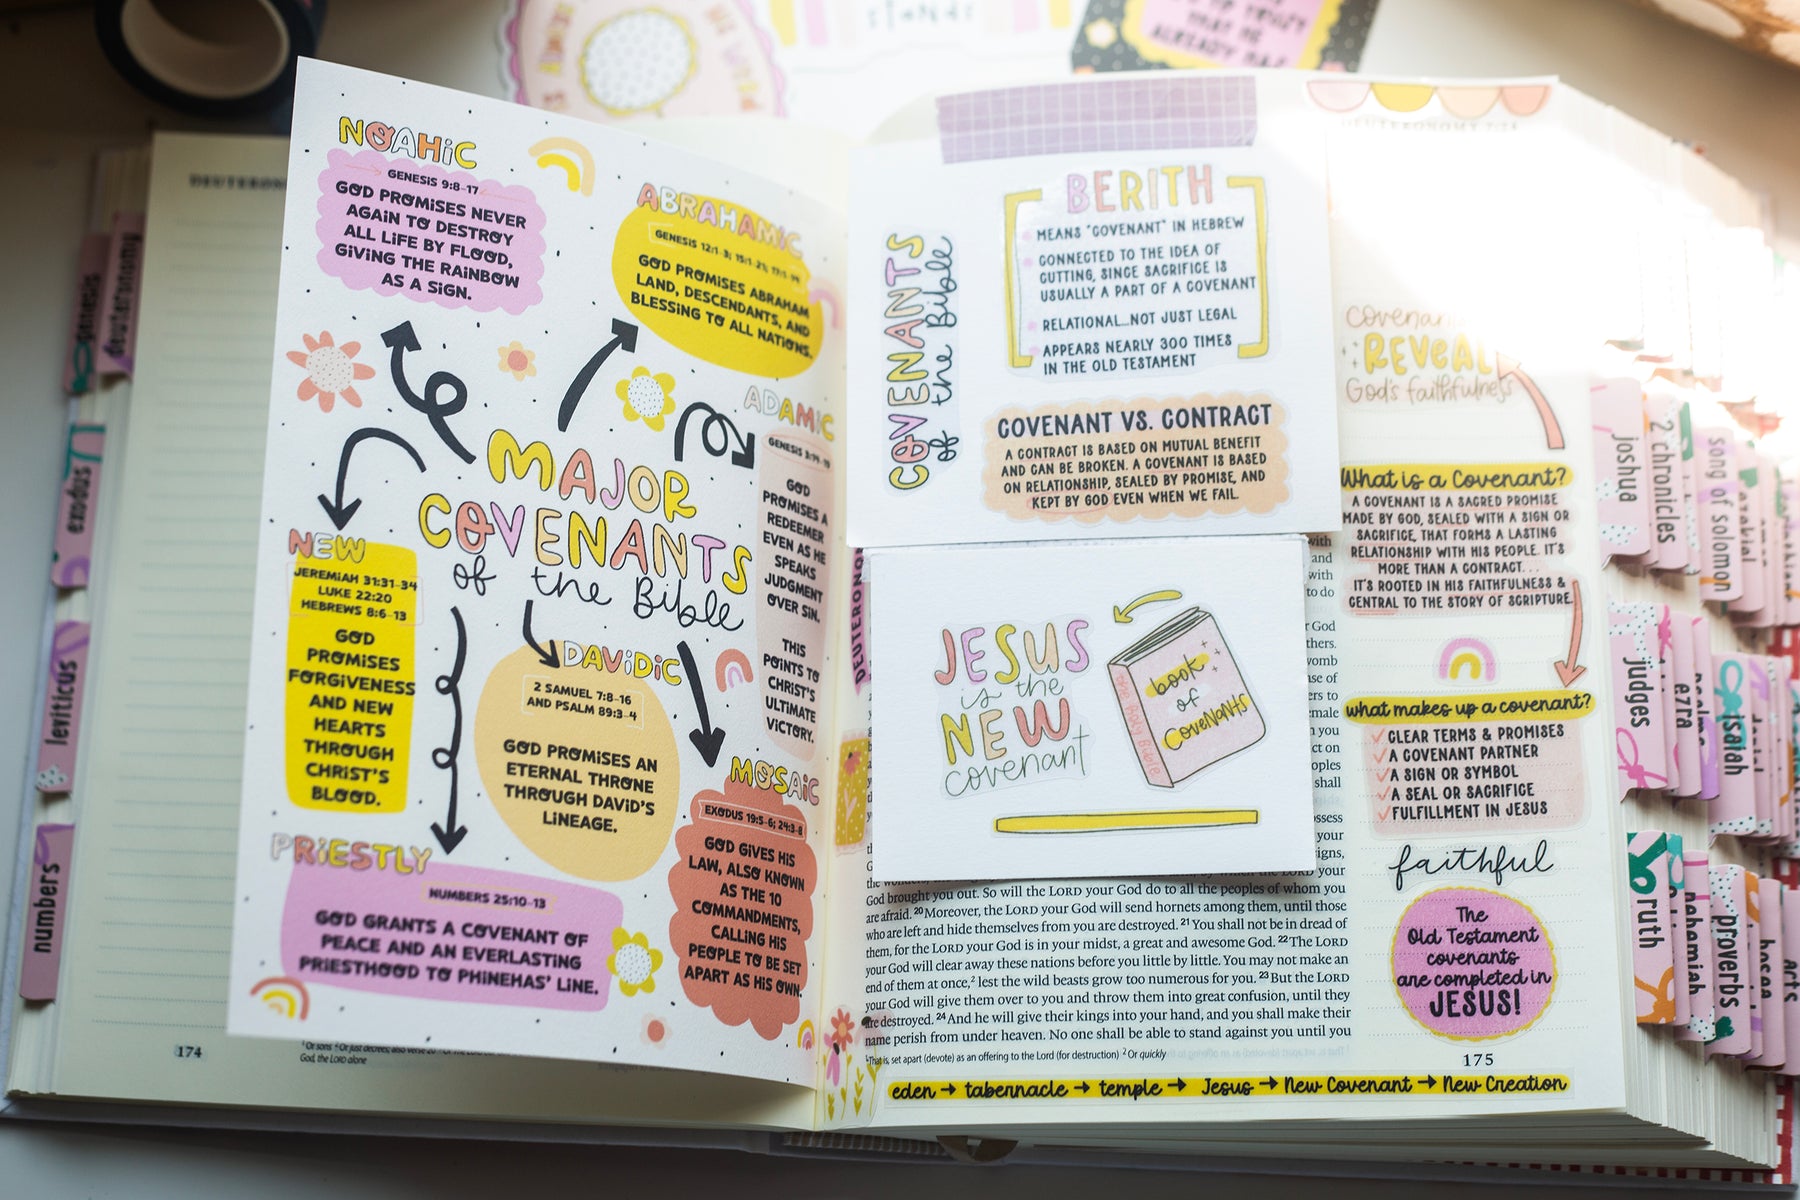 NOAHIC
GENESIS 9:8-17
GOD PROMISES NEVER
AGAIN TO DESTROY
ALL LIFE BY FLOOD,
GIVING THE RAINBOW
AS A SIGN.
ABRAHAMIC
GOD PROMISES ABRAHAM
LAND, DESCENDANTS, AND
BLESSING TO ALL NATIONS.
ADAMIC
GOD
PROMISES A
REDEEMER
EVEN AS HE
SPEAKS
JUDGMENT
OVER SIN.
THIS
POINTS TO
CHRIST'S
ULTIMATE
VICTORY.
MAJOR
COVENANTS
of the Bible
NEW
JEREMIAH 31:31-34
LUKE 22:20
HEBREWS 8:6-13
GOD
PROMISES
FORGIVENESS
AND NEW
HEARTS
THROUGH
CHRIST'S
BLOOD.
DAVIDIC
2 SAMUEL 7:8-16
AND PSALM 89:3-4
GOD PROMISES AN
ETERNAL THRONE
THROUGH DAVID'S
LINEAGE.
MOSAIC
EXODUS 19:5-6; 24:3-8
GOD GIVES HIS
LAW, ALSO KNOWN
AS THE 10
COMMANDMENTS,
CALLING HIS
PEOPLE TO BE SET
APART AS HIS OWN.
PRIESTLY
NUMBERS 25:10-13
GOD GRANTS A COVENANT OF
PEACE AND AN EVERLASTING
PRIESTHOOD TO PHINEHAS' LINE.
174
COVENANTS
of the Bible
BERITH
MEANS "COVENANT" IN HEBREW
CONNECTED TO THE IDEA OF
CUTTING, SINCE SACRIFICE IS
USUALLY A PART OF A COVENANT
RELATIONAL...NOT JUST LEGAL
APPEARS NEARLY 300 TIMES
IN THE OLD TESTAMENT
COVENANT VS. CONTRACT
A CONTRACT IS BASED ON MUTUAL BENEFIT
AND CAN BE BROKEN. A COVENANT IS BASED
ON RELATIONSHIP, SEALED BY PROMISE, AND
KEPT BY GOD EVEN WHEN WE FAIL.
JESUS
is the
NEW
covenant
the Holy Bible
book
of
Covenants
God brought you out. So will the LORD your God do to all the peoples of whom you
are afraid. 20 Moreover, the LORD your God will send hornets among them, until those
who are left and hide themselves from you are destroyed. 21 You shall not be in dread of
them, for the LORD your God is in your midst, a great and awesome God. 22 The LORD
your God will clear away these nations before you little by little. You may not make an
end of them at once,2 lest the wild beasts grow too numerous for you. 23 But the LORD
your God will give them over to you and throw them into great confusion, until they
are destroyed. 24 And he will give their kings into your hand, and you shall make their
name perish from under heaven. No one shall be able to stand against you until you
1 That is, set apart (devote) as an offering to the Lord (for destruction) 2 Or quickly
REVEAL
God's faithfulness
What is a Covenant?
A COVENANT IS A SACRED PROMISE
MADE BY GOD, SEALED WITH A SIGN OR
SACRIFICE, THAT FORMS A LASTING
RELATIONSHIP WITH HIS PEOPLE. IT'S
MORE THAN A CONTRACT...
IT'S ROOTED IN HIS FAITHFULNESS &
CENTRAL TO THE STORY OF SCRIPTURE.
what makes up a covenant?
CLEAR TERMS & PROMISES
A COVENANT PARTNER
A SIGN OR SYMBOL
A SEAL OR SACRIFICE
FULFILLMENT IN JESUS
faithful
The
Old Testament
covenants
are completed in
JESUS!
175
eden → tabernacle → temple → Jesus → New Covenant → New Creation
genesis
deuteronomy
exodus
leviticus
numbers
joshua
2 chronicles
song of solomon
judges
ezra
isaiah
ruth
nehemiah
proverbs
hosea
acts